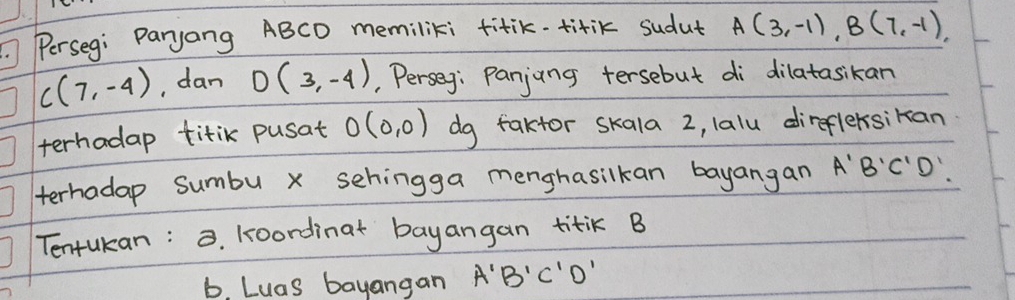 Persegi Panjang ABCD memiliki titik-titik sudut A(3,-1), B(7,-1),
C(7,-4), dan D(3,-4), Persegi Panjang tersebut di dilatasikan
terhadap titik pusat O(0,0) dg faktor skala 2, lalu direfleksikan
terhadap sumbu x sehingga menghasilkan bayangan A'B'C'D'.
Tentukan : a. koordinat bayangan titik B
b. Luas bayangan A'B'C'D'